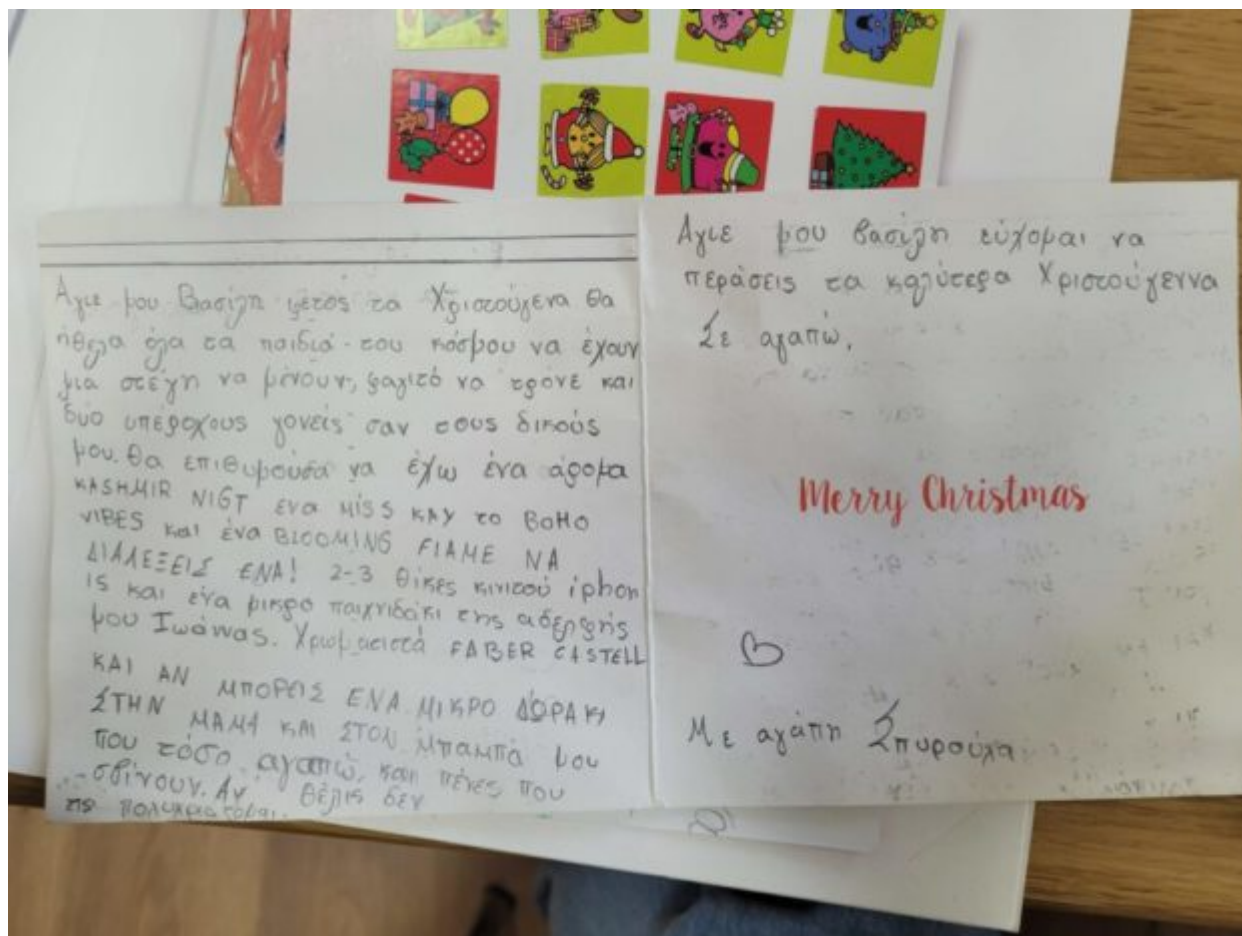 Αγιε μου Βασίλη φέτος τα Χριστούγενα θα
ήθελα όλα τα παιδιά του κόσμου να έχουν
μια στέγη να μένουν, φαγιτό να τρόνε και
δύο υπέροχους γονείς σαν τους δικούς
μου. Θα επιθυμούσα να έχω ένα άρομα
KASHMIR NIGT ένα MISS KAY το BOHO
VIBES και ένα BLOOMING FIAME ΝΑ
ΔΙΑΛΕΞΕΙΣ ΕΝΑ! 2-3 θίκες κινιτού iphon
15 και ένα μικρο παιχνιδάκι της αδερφής
μου Ιωάννας. Χρωματιστά FABER CASTELL
ΚΑΙ ΑΝ ΜΠΟΡΕΙΣ ΕΝΑ ΜΙΚΡΟ ΔΩΡΑΚΙ
ΣΤΗΝ ΜΑΜΑ ΚΑΙ ΣΤΟΝ Μπαμπά μου
που τόσο αγαπώ, και πένες που
σβίνουν. Αν θέλις δεν
πολυχριάζομαι.
Αγιε μου Βασίλη εύχομαι να
περάσεις τα καλύτερα Χριστούγεννα
Σε αγαπώ,
Merry Christmas
Με αγάπη Σπυρούλα